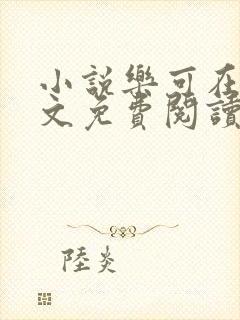 小說樂可在
文免費閱讀
陸炎